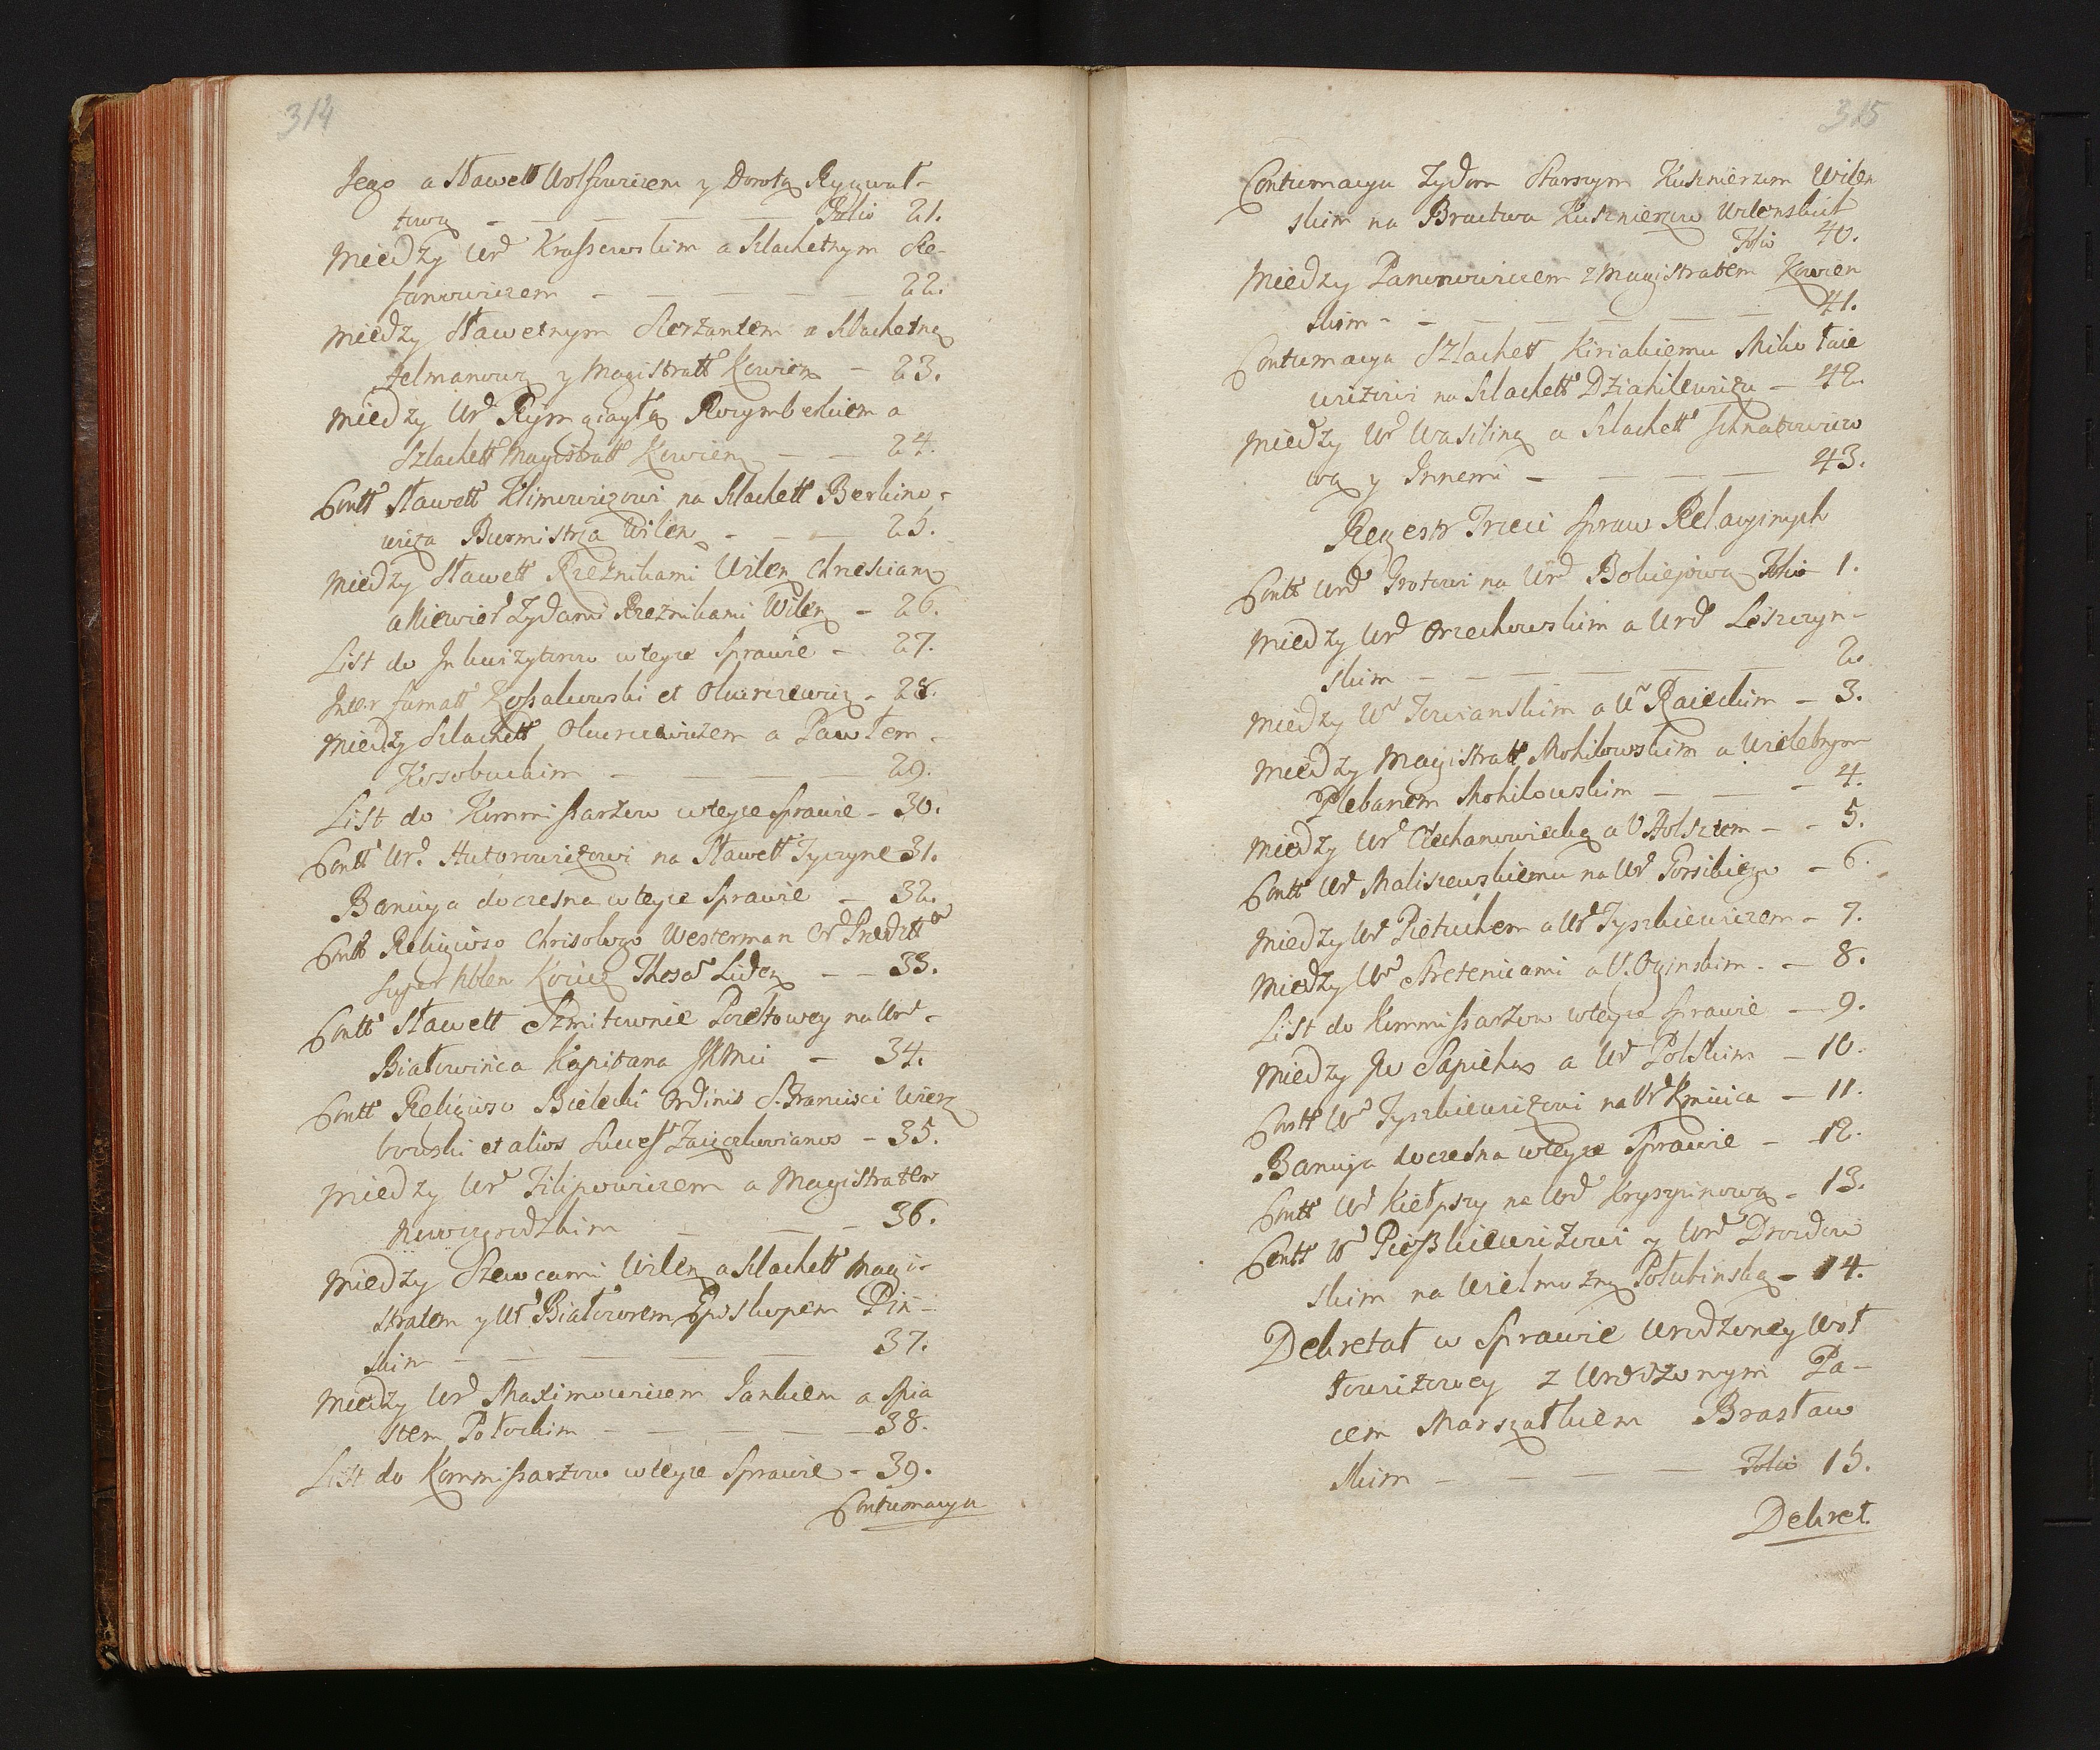 314
Jego a Sławett Wolfowiczem y Dorotą Rygwał-
tową - - - - - Folio 21.
Między Ur Krassewskim a Szlachetnym Ste-
fanowiczem - - - - - 22.
Między Sławetnym Sierżantem a Szlachetną
Helmanową y Magistratt Kowien - 23.
Między Ur Rymgayłą Rozymberkiem a
Szlachett Magistratt Kowien - - 24.
Contt Sławett Klimowiczowi na Szlachett Berkino-
wicza Burmistrza Wilen - - - 25.
Między Sławett Rzeźnikami Wilen Chrescianą
a Niewier Zydami Rzeźnikami Wilen - 26.
List do Inkwizytorow w teyze Sprawie - 27.
Inter famatt Kossakowski et Okurczewicz - 28.
Między Szlachett Okurczewiczem a Pawłem
Kosobuckim - - - 29.
List do Kommissarzow w teyze Sprawie - 30.
Contt Ur. Hutorowiczowi na Sławett Tyczyne 31.
Banicya doczesna w teyze Sprawie - 32.
Contt Religioso Chrisologo Westerman Ord Preditt
super Nblem Koricz Thesar Liden - - 33.
Contt Sławett Szmitownie Poretowey na Ur
Białowinca Kapitana JKMci - 34.
Contt Religioso Bielecki Ordinis S. Francisci Wierz
bowski et alios Success Zaiączkowianos - 35.
Między Ur Filipowiczem a Magistratem
Nowogrodzkim - - - 36.
Między Szewcami Wilen a Szlachett Magi-
stratem y Ur Białłozorem Episkopem Pin-
skim - - - - - 37.
Między Ur Maximowiczem Jankiem a Mia
stem Połockim - - - - - 38.
List do Kommissarzow w teyze Sprawie - 39.
Contumacya
315
Contumacya Zydom Starszym Kusznierzom Wilen
skim na Bractwa Kusznierzow Wilenskich
Folio 40.
Między Panowiczem z Magistratem Kowien
skim - - - - - 41.
Contumacya Szlachett Kiriakiemu Mikołaie
wiczowi na Szlachett Dziakiewicza - 42.
Między Ur Wasiliną a Szlachett Ihnatowiczo
wą y Innemi - - - - 43.
Regestr Trzeci Spraw Relacyinych
Contt Urd Grotowi na Urd Bokiejową Folio 1.
Między Urd Orzechowskim a Urd Leszczyn-
skim - - - - - 2.
Między Ur Towianskim a Ur Raieckim - 3.
Między Magistratt Mohilowskim a Wielebnym
Plebanem Mohilowskim - - - 4.
Między Ur Ciechanowiecką a U Holszem - - 5.
Contt Ur Maliszewskiemu na Ur Gorskiego - 6.
Między Ur Pietuchem a Ur Tyszkiewiczem - 7.
Między Ur Stretenicami a U. Oginskim - - 8.
List do Kommissarzow w teyze Sprawie - 9.
Między Jw Sapiehą a Ur Polskim - 10.
Contt Ur Tyszkiewiczowi na Ur Kmicica - 11.
Banicja doczesna w teyze Sprawie - 12.
Contt Ur Kiełpszy na Urd Kryszpinową - 13.
Contt Ur Pioszkiewiczowi y Urd Drozdow
skim na Wielmozną Połubinską - 14.
Dekretał w Sprawie urodzoney Woł
łowiczowey z Urodzonym Pa-
cem Marszałkiem Brasław
skim - - - - - Folio 15.
Dekret.